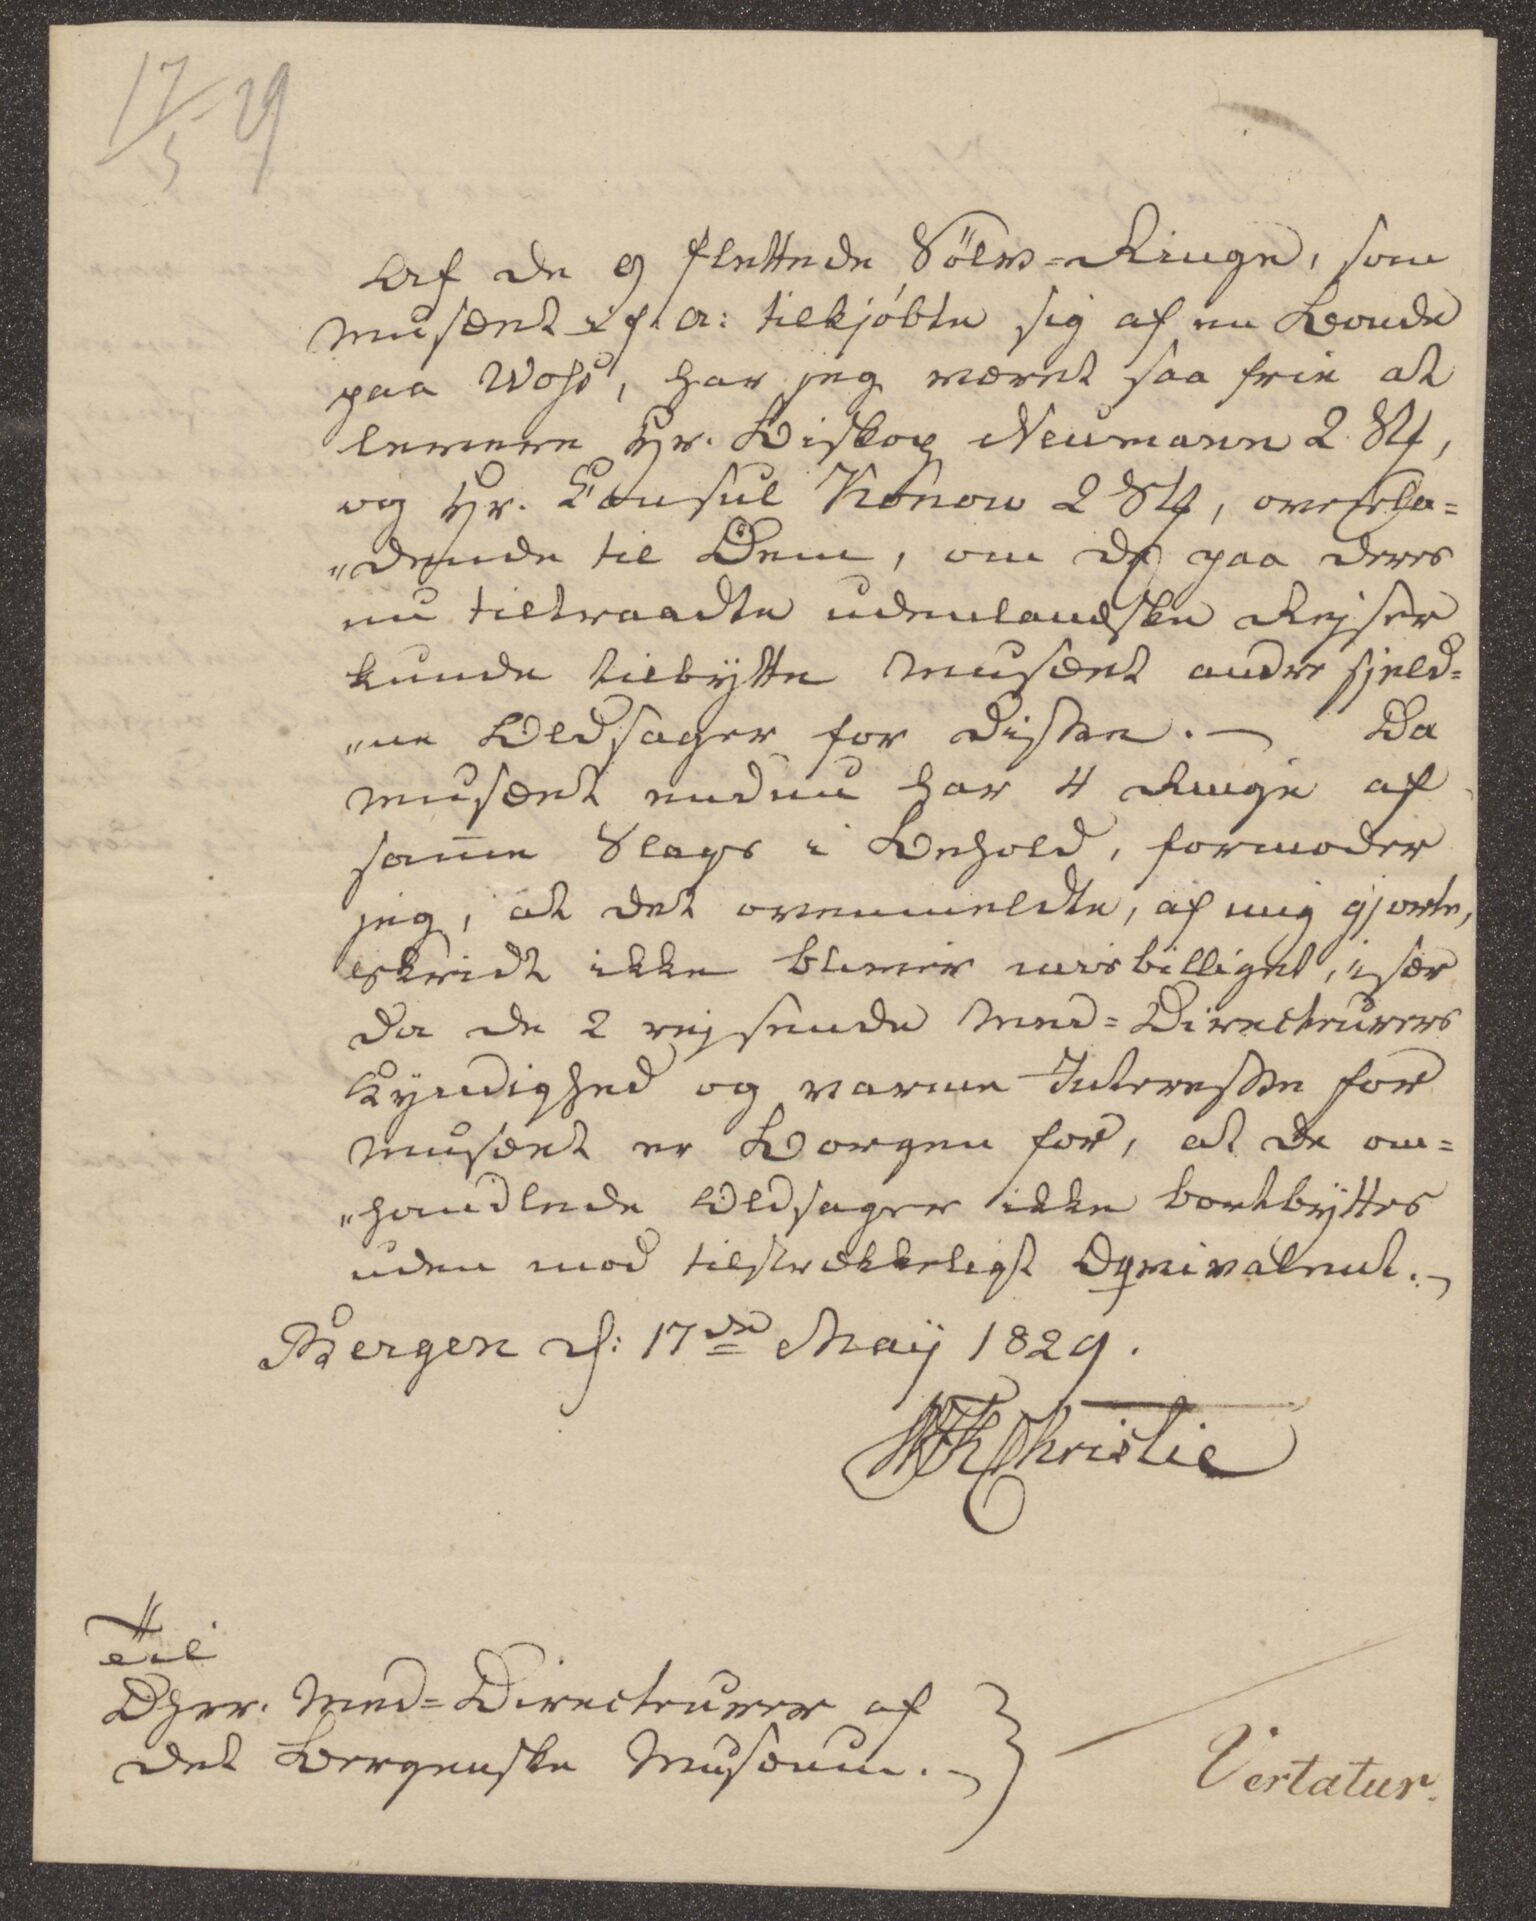 17/5 29
Af de 9 flettede Sölv=Ringe, som
Musæet i f. A: tilkjöbte sig af en Bonde
paa Woss, har jeg været saa frie at
levere Hr. Biskop Neumann 2 Stk,
og Hr. Consul Konow 2 Stk, overla=
„dende til Dem, om de paa deres
nu tiltraadte udenlandske Rejser
kunde tilbÿtte Musæet andre sjeld=
„ne Oldsager for disse. — Da
Musæet endnu har 4 Ringe af
sam̅e Slags i Behold, formoder
jeg, at det ovenmeldte, af mig gjorte,
Skridt ikke bliver misbilliget, især
da de 2 rejsende Med=Directeurers
Kÿndighed og varme Interesse for
Musæet er Borgen for, at de om=
„handlede Oldsager ikke bortbÿttes
uden mod tilstrækkeligt Æqvivalent. —
Bergen d: 17de Maÿ 1829.
WFKChristie
Til
DHrr. Med=Directeurer af
det Bergenske Musæum. —
Vertatur.